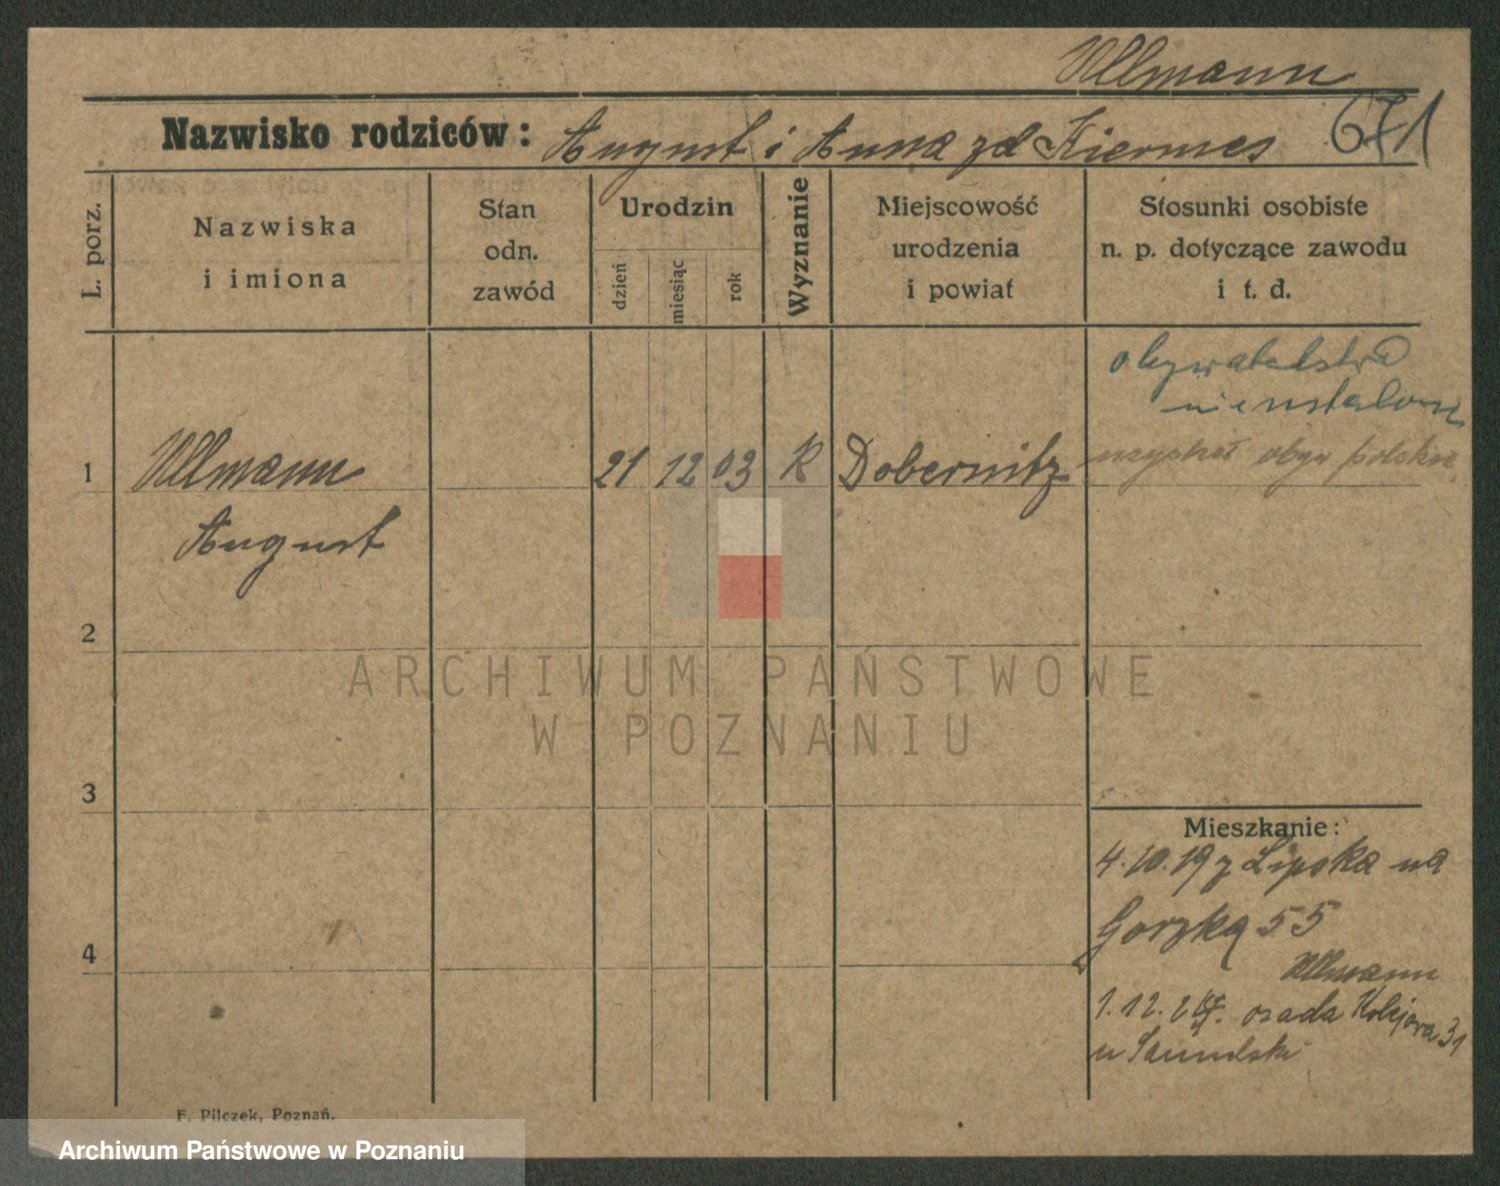 Ullmann
Nazwisko rodziców: August i Anna zd Kiermes 671
L. porz.
Nazwiska i imiona
Stan odn. zawód
Urodzin
dzień
miesiąc
rok
Wyznanie
Miejscowość urodzenia i powiat
Stosunki osobiste n. p. dotyczące zawodu i t. d.
obywatelstwo
nieustalone
1 Ullmann 21 12 03 K Dobernitz uzyskał obyw polskie
August
2
ARCHIWUM PAŃSTWOWE
W POZNANIU
3
Mieszkanie:
4.10.19 z Lipska na
Gorzką 55
4
Ullmann
1.12. osada Kolejowa 31
u
F. Pilczek, Poznań.
Archiwum Państwowe w Poznaniu